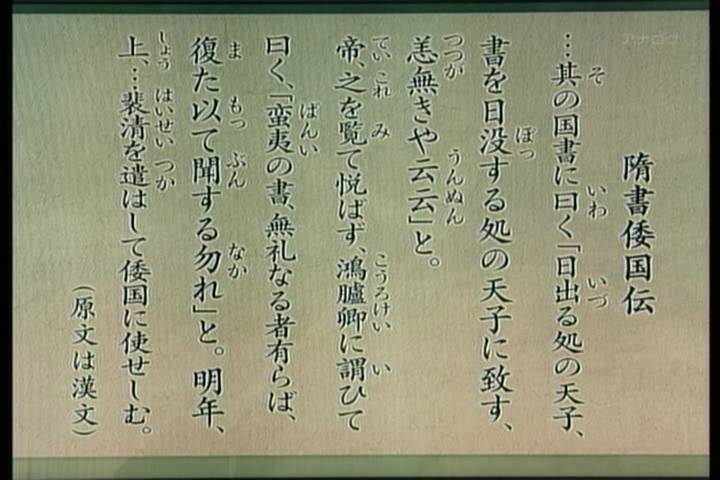 アナログ
隋書倭国伝
…其の国書に曰く「日出る処の天子、
そ いわ いづ
書を日没する処の天子に致す、
ぼっ
恙無きや云云」と。
つつが うんぬん
帝、之を覧て悦ばず、鴻臚卿に謂ひて
てい これ み こうろけい い
曰く、「蛮夷の書、無礼なる者有らば、
ばんい
復た以て聞する勿れ」と。明年、
ま もっ ぶん なか
上、…裴清を遣はして倭国に使せしむ。
しょう はいせい つか
（原文は漢文）